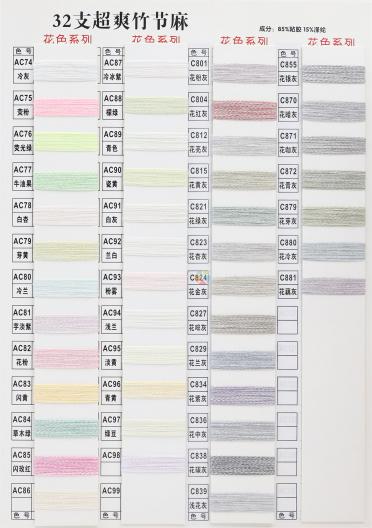 32支超爽竹节麻
成分: 85%粘胶 15%涤纶
花色系列 花色系列 花色系列 花色系列
色 号
AC74
冷灰
AC75
荧粉
AC76
荧光绿
AC77
牛油果
AC78
白杏
AC79
芽黄
AC80
冷兰
AC81
芋淡紫
AC82
花粉
AC83
闪黄
AC84
草木绿
AC85
闪玫红
AC86
色 号
色 号
AC87
冷冰紫
AC88
檬绿
AC89
青色
AC90
瓷黄
AC91
白灰
AC92
兰白
AC93
粉雾
AC94
浅兰
AC95
淡黄
AC96
青黄
AC97
绿豆
AC98
AC99
色 号
色 号
C801
花粉灰
C804
花红灰
C812
花亮灰
C815
花黄灰
C821
花绿灰
C823
花杏灰
C824
花金灰
C827
花暗灰
C829
花兰灰
C834
花紫灰
C836
花中灰
C838
花碳灰
C839
浅花灰
色 号
色 号
C855
花银灰
C870
花暗灰
C871
花咖灰
C872
花青灰
C879
花芽灰
C880
花冷灰
C881
花藕灰
色 号